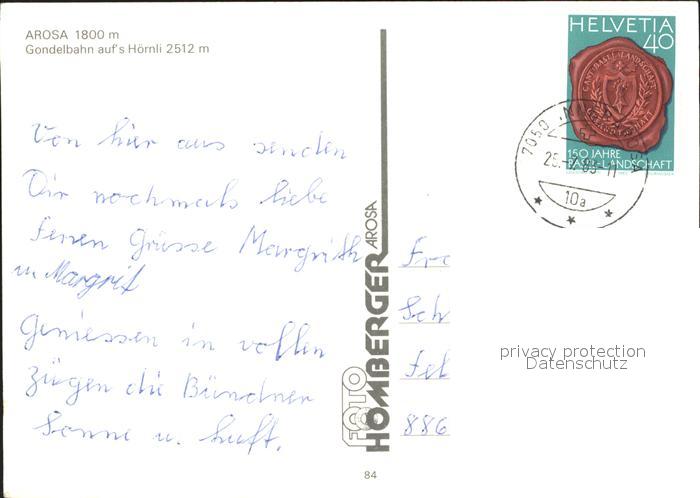 AROSA 1800 m
Gondelbahn auf's Hörnli 2512 m
HELVETIA
40
CANT. BASEL-LANDSCHAFT
150 JAHRE
BASEL-LANDSCHAFT
7050
25.
10a
Von hier aus senden
Dir nochmals liebe
Ferien Grüsse Margrith
u. Margrit
Geniessen in vollen
Zügen die Bündner
Sonne u. Luft.
FOTO
HOMBERGER AROSA
Fr
Sch
Fel
886
privacy protection
Datenschutz
84